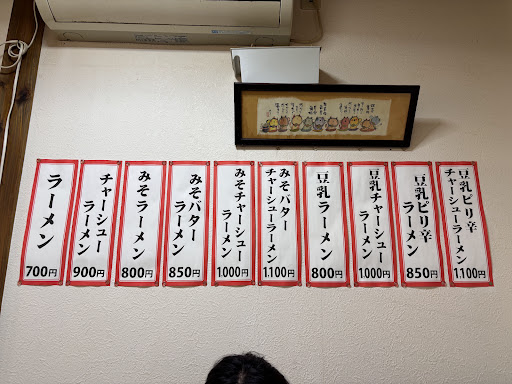 ラーメン
700円
チャーシュー
ラーメン
900円
みそラーメン
800円
みそバター
ラーメン
850円
みそチャーシュー
ラーメン
1000円
みそバター
チャーシューラーメン
1,100円
豆乳ラーメン
800円
豆乳チャーシュー
ラーメン
1000円
豆乳ピリ辛
ラーメン
850円
豆乳ピリ辛
チャーシューラーメン
1,100円